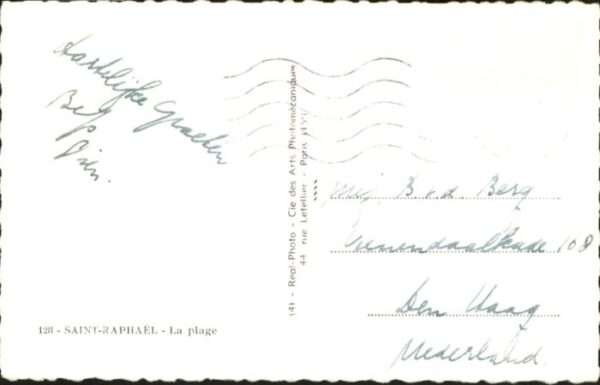 Hartelijke Groeten
Bep
Din.
128 - SAINT-RAPHAËL - La plage
(4) - Real-Photo - Cie des Arts Photomécaniques
44, rue Letellier - Paris (15e)
Mej. B. v. d. Berg
Veenendaalkade 108
Den Haag
Nederland.